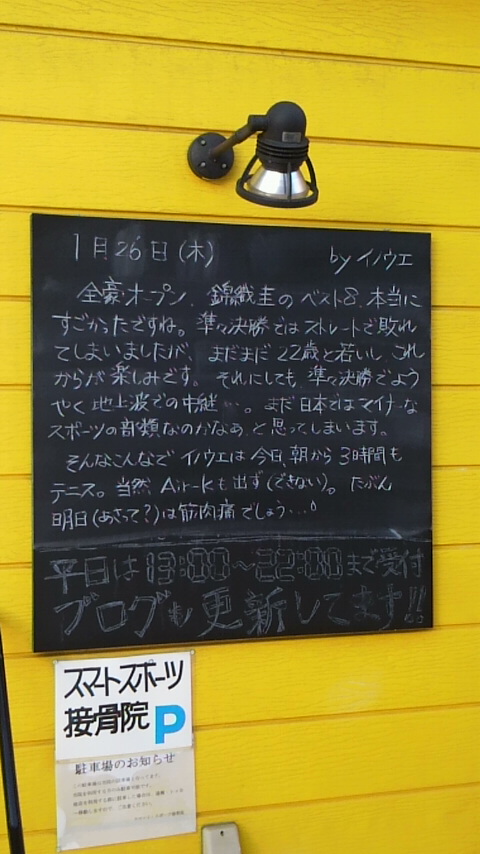 1月26日(木) by イノウエ
全豪オープン、錦織圭のベスト8、本当に
すごかったですね。準々決勝ではストレートで敗れ
てしまいましたが、まだまだ22歳と若いし、これ
からが楽しみです。それにしても、準々決勝でよう
やく地上波での中継…。まだ日本ではマイナーな
スポーツの部類なのかなあ、と思ってしまいます。
そんなこんなでイノウエは今日、朝から3時間も
テニス。当然Air-Kも出ず(できない)。たぶん
明日(あさって?)は筋肉痛でしょう…。
平日は13:00~22:00まで受付
ブログも更新してます!!
スマートスポーツ
接骨院 P
駐車場のお知らせ